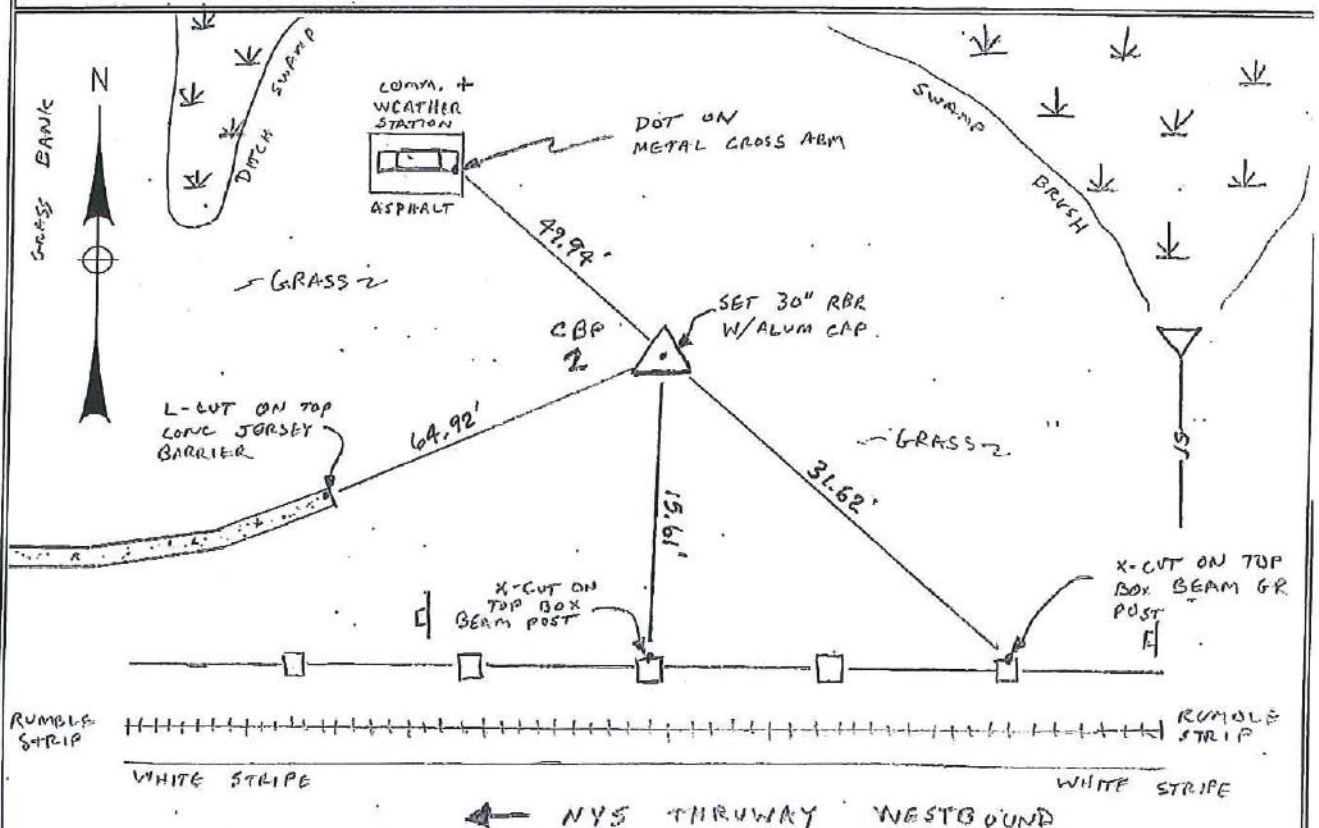 N
GRASS BANK
SWAMP
DITCH
COMM. +
WEATHER
STATION
ASPHALT
DOT ON
METAL CROSS ARM
SWAMP
BRUSH
49.94'
GRASS
CBP
2
SET 30" RBR
W/ALUM CAP.
L-CUT ON TOP
CONC JERSEY
BARRIER
64.92'
GRASS
15.61'
31.62'
X-CUT ON
TOP BOX
BEAM POST
X-CUT ON TOP
BOX BEAM GR
POST
RUMBLE
STRIP
RUMBLE
STRIP
WHITE STRIPE
WHITE STRIPE
NYS THRUWAY WESTBOUND